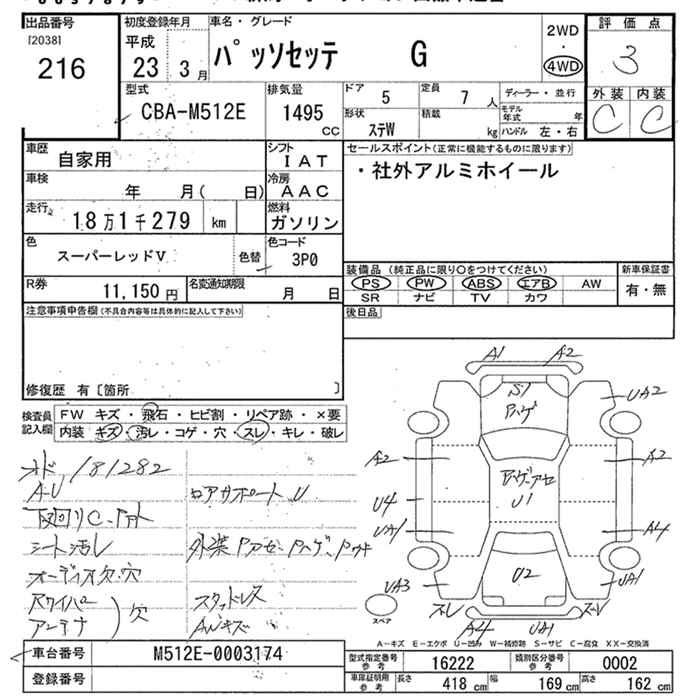 出品番号
[2038]
216
初度登録年月
平成
23 3月
車名・グレード
パッソセッテ G
2WD
・
4WD
評価点
3
外装 内装
C C
型式
CBA-M512E
排気量
1495
cc
ドア
5
定員
7 人
形状
ステW
積載
kg
ディーラー・並行
モデル年式 年
ハンドル 左・右
車歴
自家用
シフト
IAT
車検
年 月( 日)
冷房
AAC
走行
18万1千279 km
燃料
ガソリン
色
スーパーレッドV
色替
色コード
3P0
R券
11,150 円
名変通知期限
月 日
セールスポイント(正常に機能するものに限ります)
・社外アルミホイール
装備品 (純正品に限り○をつけてください)
PS PW ABS エアB AW
SR ナビ TV カワ
新車保証書
有・無
後日品
注意事項申告欄(不具合内容等は具体的に記入して下さい)
修復歴 有〔箇所 〕
検査員
記入欄
FW キズ・飛石・ヒビ割・リペア跡・×要
内装 キズ・汚レ・コゲ・穴・スレ・キレ・破レ
オド 181282
A-U
ロアサポートU
下回りC、
シート汚レ
外装
オーディオ欠、穴
Rワイパー
アンテナ
欠
スタッドレス
AWキズ
A1 A2
S1
Pハゲ
UA2
A2
A2
U1
U4
UA1
A4
U2
UA3
UA1
スレ
スレ
スペア
A4
UA1
A-キズ E-エクボ U-凹み W-補修跡 S-サビ C-腐食 XX-交換済
車台番号
M512E-0003174
登録番号
型式指定番号
参考
16222
類別区分番号
参考
0002
車庫証明用
参考
長さ 418 cm 幅 169 cm 高さ 162 cm